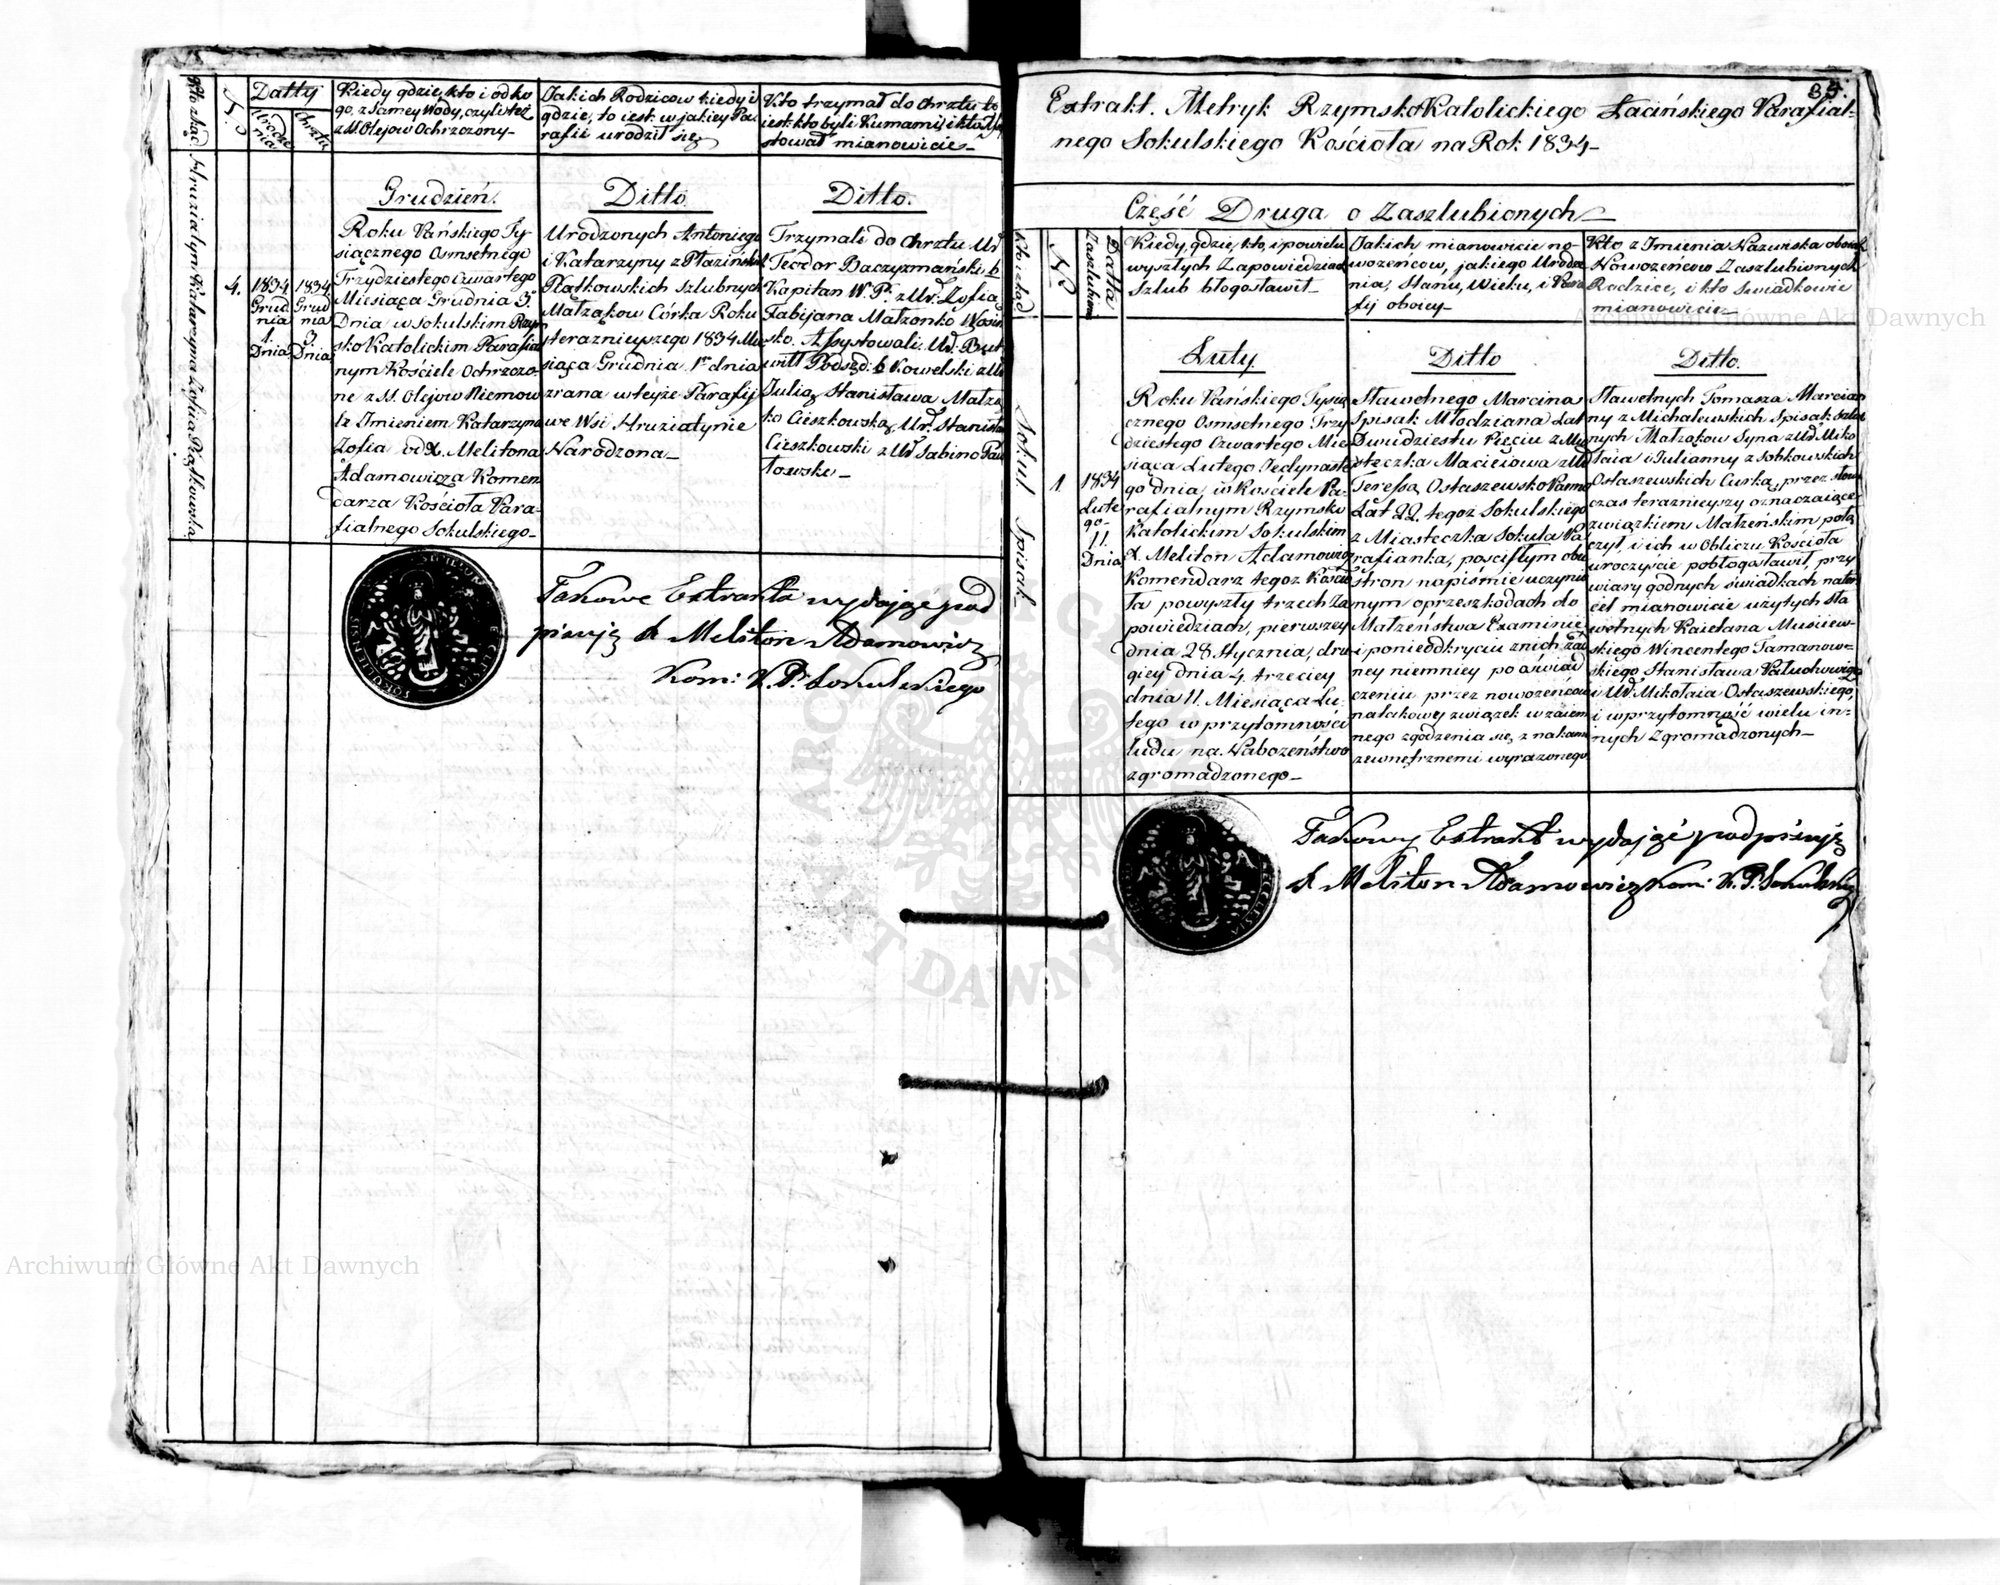 Kto i skąd
Nº
Datty
Urodzenia
Chrztu
Kiedy gdzie, kto i od ko
go, z samey Wody, czyli też
z SS Olejow Ochrzczony
Jakich Rodzicow kiedy i
gdzie, to iest: w jakiey Pa
rafii urodził się
Kto trzymał do chrztu to
iest: kto byli Kumami, i kto Assy
stował mianowicie
Hruziatyn Katarzyna Zofia Piątkowska
4.
1834
Grud
nia
1.
Dnia
1834
Grud
nia
3.
Dnia
Grudzień.
Roku Pańskiego Ty-
siącznego Osmsetnego
Trzydziestego Czwartego
Miesiąca Grudnia 3º
Dnia w Sokulskim Rzym
sko Katolickim Parafial
nym Kościele Ochrzczo-
ne z SS. Olejow Niemow
le Imieniem Katarzyna
Zofia od X. Melitona
Adamowicza Komen
darza Kościoła Para-
fialnego Sokulskiego
Ditto
Urodzonych Antoniego
i Katarzyny z Płazińskich
Piątkowskich szlubnych
Małżąkow Córka Roku
teraznieyszego 1834 Mie
siąca Grudnia 1º dnia
zrana w teyże Parafij
we Wsi Hruziatynie
Narodzona
Ditto.
Trzymali do chrztu Ur
Teodor Baczyzmański b.
Kapitan W. P. z Ur. Zofią
Fabijana Małżonko
sko. Assystowali. Ur:
Podsęd: b Kowelski z Ur
Julią Stanisława Małżą
ko Cieszkowską, Ur. Stanisław
Cieszkowski z Ur Sabiną Paw
łowską
Takowe Extrakta wydając pod
pisuję X Meliton Adamowicz
Kom: K. P. Sokulskiego
Extrakt. Metryk Rzymsko Katolickiego Łacińskiego Parafial-
nego Sokulskiego Kościoła na Rok 1834
Część Druga o Zaszlubionych
Kto i zkąd
Nº
Datta
Zaszlubienia
Kiedy, gdzie, kto, i po wielu
wyszłych Zapowiedziach
Szlub błogosławił
Jakich mianowicie no-
wożeńcow, jakiego Urodze
nia, Stanu, Wieku, i Para
fij oboiey
Kto z Imienia Nazwiska oboich
Nowożeńcow Zaszlubionych
Rodzice, i kto świadkowie
mianowicie
Sokul Spisak
1.
1834
Lute
go
11.
Dnia
Luty.
Roku Pańskiego Tysią
cznego Osmsetnego Trzy
dziestego Czwartego Mie
siąca Lutego Jedynaste
go dnia, w Kościele Pa-
rafialnym Rzymsko
Katolickim Sokulskim
X Meliton Adamowicz
Komendarz tegoż Kościo
ła po wyszły trzech Za
powiedziach, pierwszey
dnia 28 Stycznia, dru
giey dnia 4. trzeciey
dnia 11. Miesiąca Lu
tego w przytomności
ludu na Nabożeństwo
zgromadzonego
Ditto
Sławetnego Marcina
Spisak Młodziana Lat
Dwudziestu Pięciu z Mia
steczka Macieiowa z Ur
Teressą Ostaszewsko Panno
Lat 22. tegoż Sokulskiego
z Miasteczka Sokula Pa
rafianka, po ścisłym obu
stron na piśmie uczynio
nym o przeszkodach do
Małżeństwa Examinie,
i ponieodkryciu z nich żad
ney niemniey po oświad
czeniu przez nowożeńcow
na takowy związek wzaiem
nego zgodzenia się, znakami
zewnętrznemi wyrażonego
Ditto.
Sławetnych Tomasza Marcian
ny z Michalewskich Spisak szlub
nych Małżąkow Syna z Ur Miko
łaia i Julianny z Sobkowskich
Ostaszewskich Curką, przez słowa
czas teraznieyszy oznaczaiące
związkiem Małżeńskim połą
czył, i ich w Obliczu Kościoła
uroczyście pobłogosławił, przy
wiary godnych świadkach na ten
cel mianowicie użytych Sła
wetnych Kaietana Musiew-
skiego Wincentego Tamanow-
skiego Stanisława
i Ur. Mikołaia Ostaszewskiego,
i w przytomność wielu in-
nych Zgromadzonych
Takowy Extrakt wydając podpisuję
X Meliton Adamowicz Kom: K. P. Sokulski
Archiwum Główne Akt Dawnych
Archiwum Główne Akt Dawnych